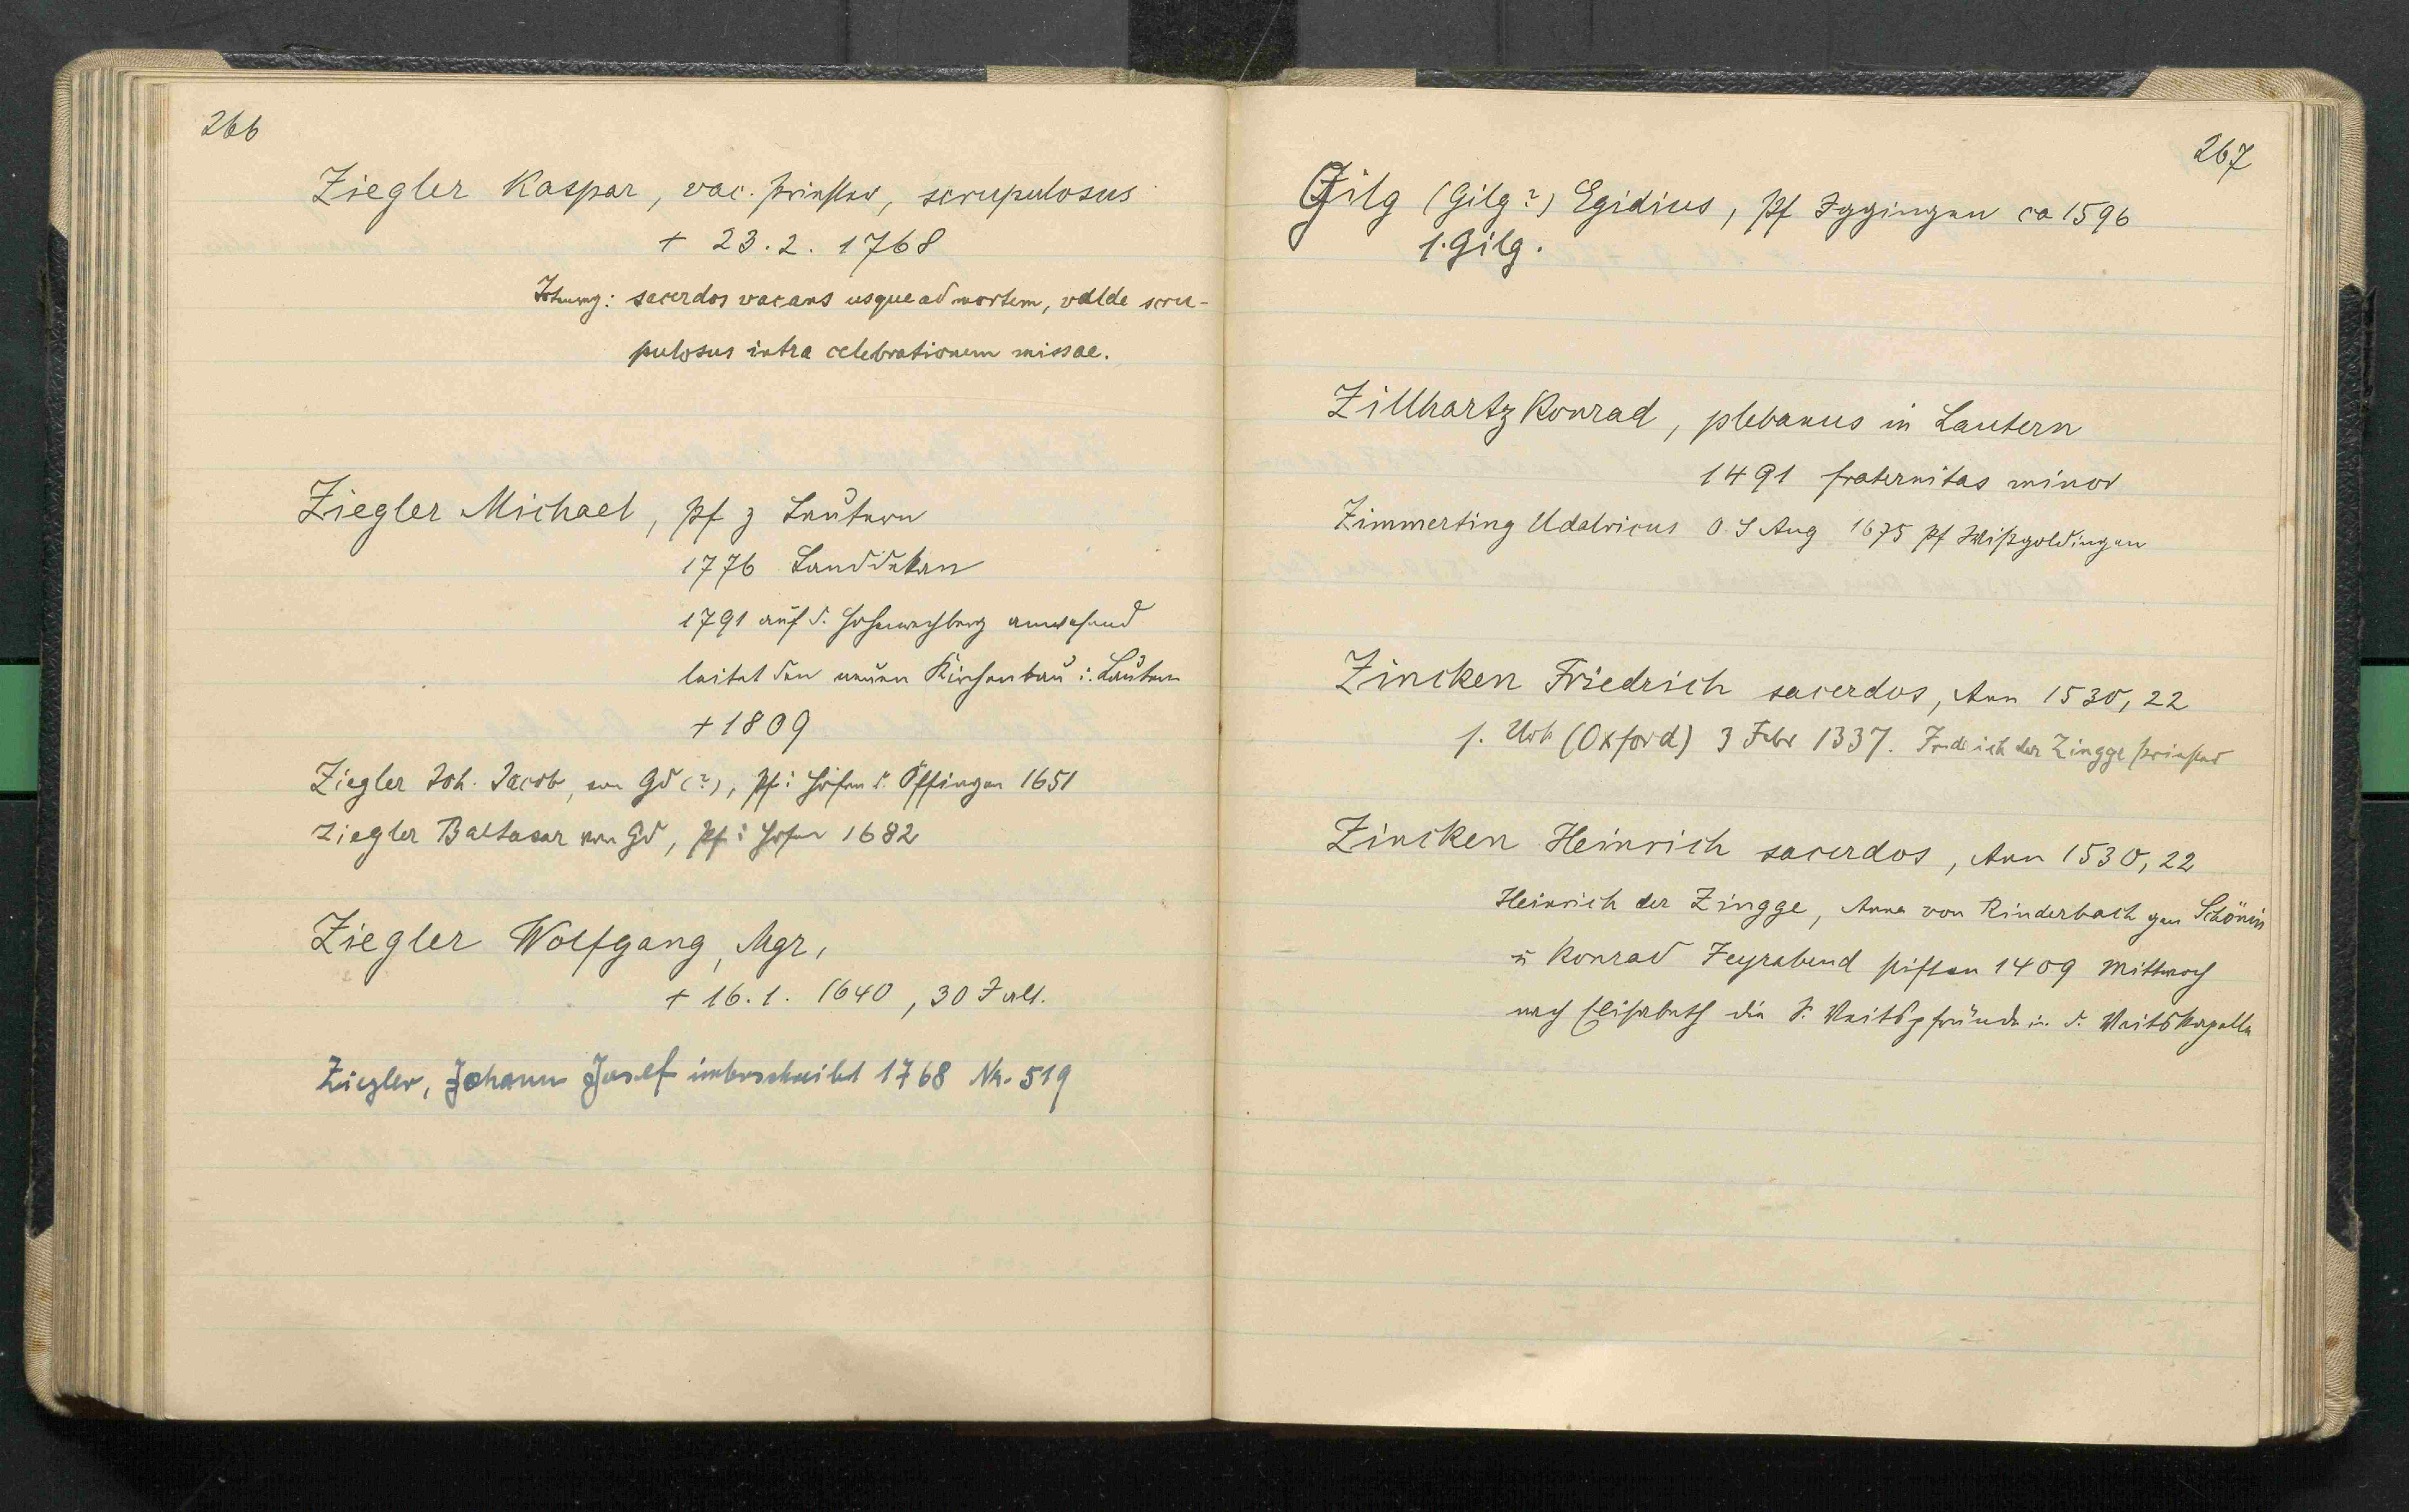 266
Ziegler Kaspar, vac. Priester, scrupulosus
+ 23.2. 1768
sacerdos vacans usque ad mortem, valde scru-
pulosus intra celebrationem missae.
Ziegler Michael, Pf z Lautern
1776 Landdekan
1791 auf d. Hohenrechberg anwesend
leitet den neuen Kirchenbau i. Lautern
+ 1809
Ziegler Joh. Jacob, von Gd (?), Pf i Hofen u. Öffingen 1651
Ziegler Baltasar von Gd, Pf i Hofen 1682
Ziegler Wolfgang, Mgr,
+ 16.1. 1640, 30 J alt.
Ziegler, Johann Josef unterschreibt 1768 Nr. 519
267
Zilg (Gilg?) Egidius, Pf Iggingen ca 1596
1. Gilg.
Zillhartz Konrad, plebanus in Lautern
1491 fraternitas minor
Zimmerting Udalricus O.S Aug 1675 Pf Wißgoldingen
Zincken Friedrich sacerdos, Ann 1530, 22
s. Urk (Oxford) 3 Febr 1337. Friedrich der Zingge Priester
Zincken Heinrich sacerdos, Ann 1530, 22
Heinrich der Zingge, Anna von Rinderbach gen Schönin
u Konrad Feyrabend stiften 1409 Mittwoch
nach Elisabeth die St. Veitspfründe in d. Veitskapelle